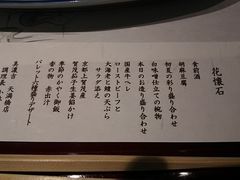 花懐石
食前酒
胡麻豆腐
初夏の彩り盛り合わせ
白味噌仕立ての椀物
本日のお造り盛り合わせ
国産牛ヘレ
ローストビーフと
大海老と鱧の天ぷら
サラダ添え
京都上賀茂産
賀茂茄子生姜餡かけ
季節のかやく御飯
香の物 赤出汁
パレット六種盛りデザート
美濃吉 天満橋店
調理長